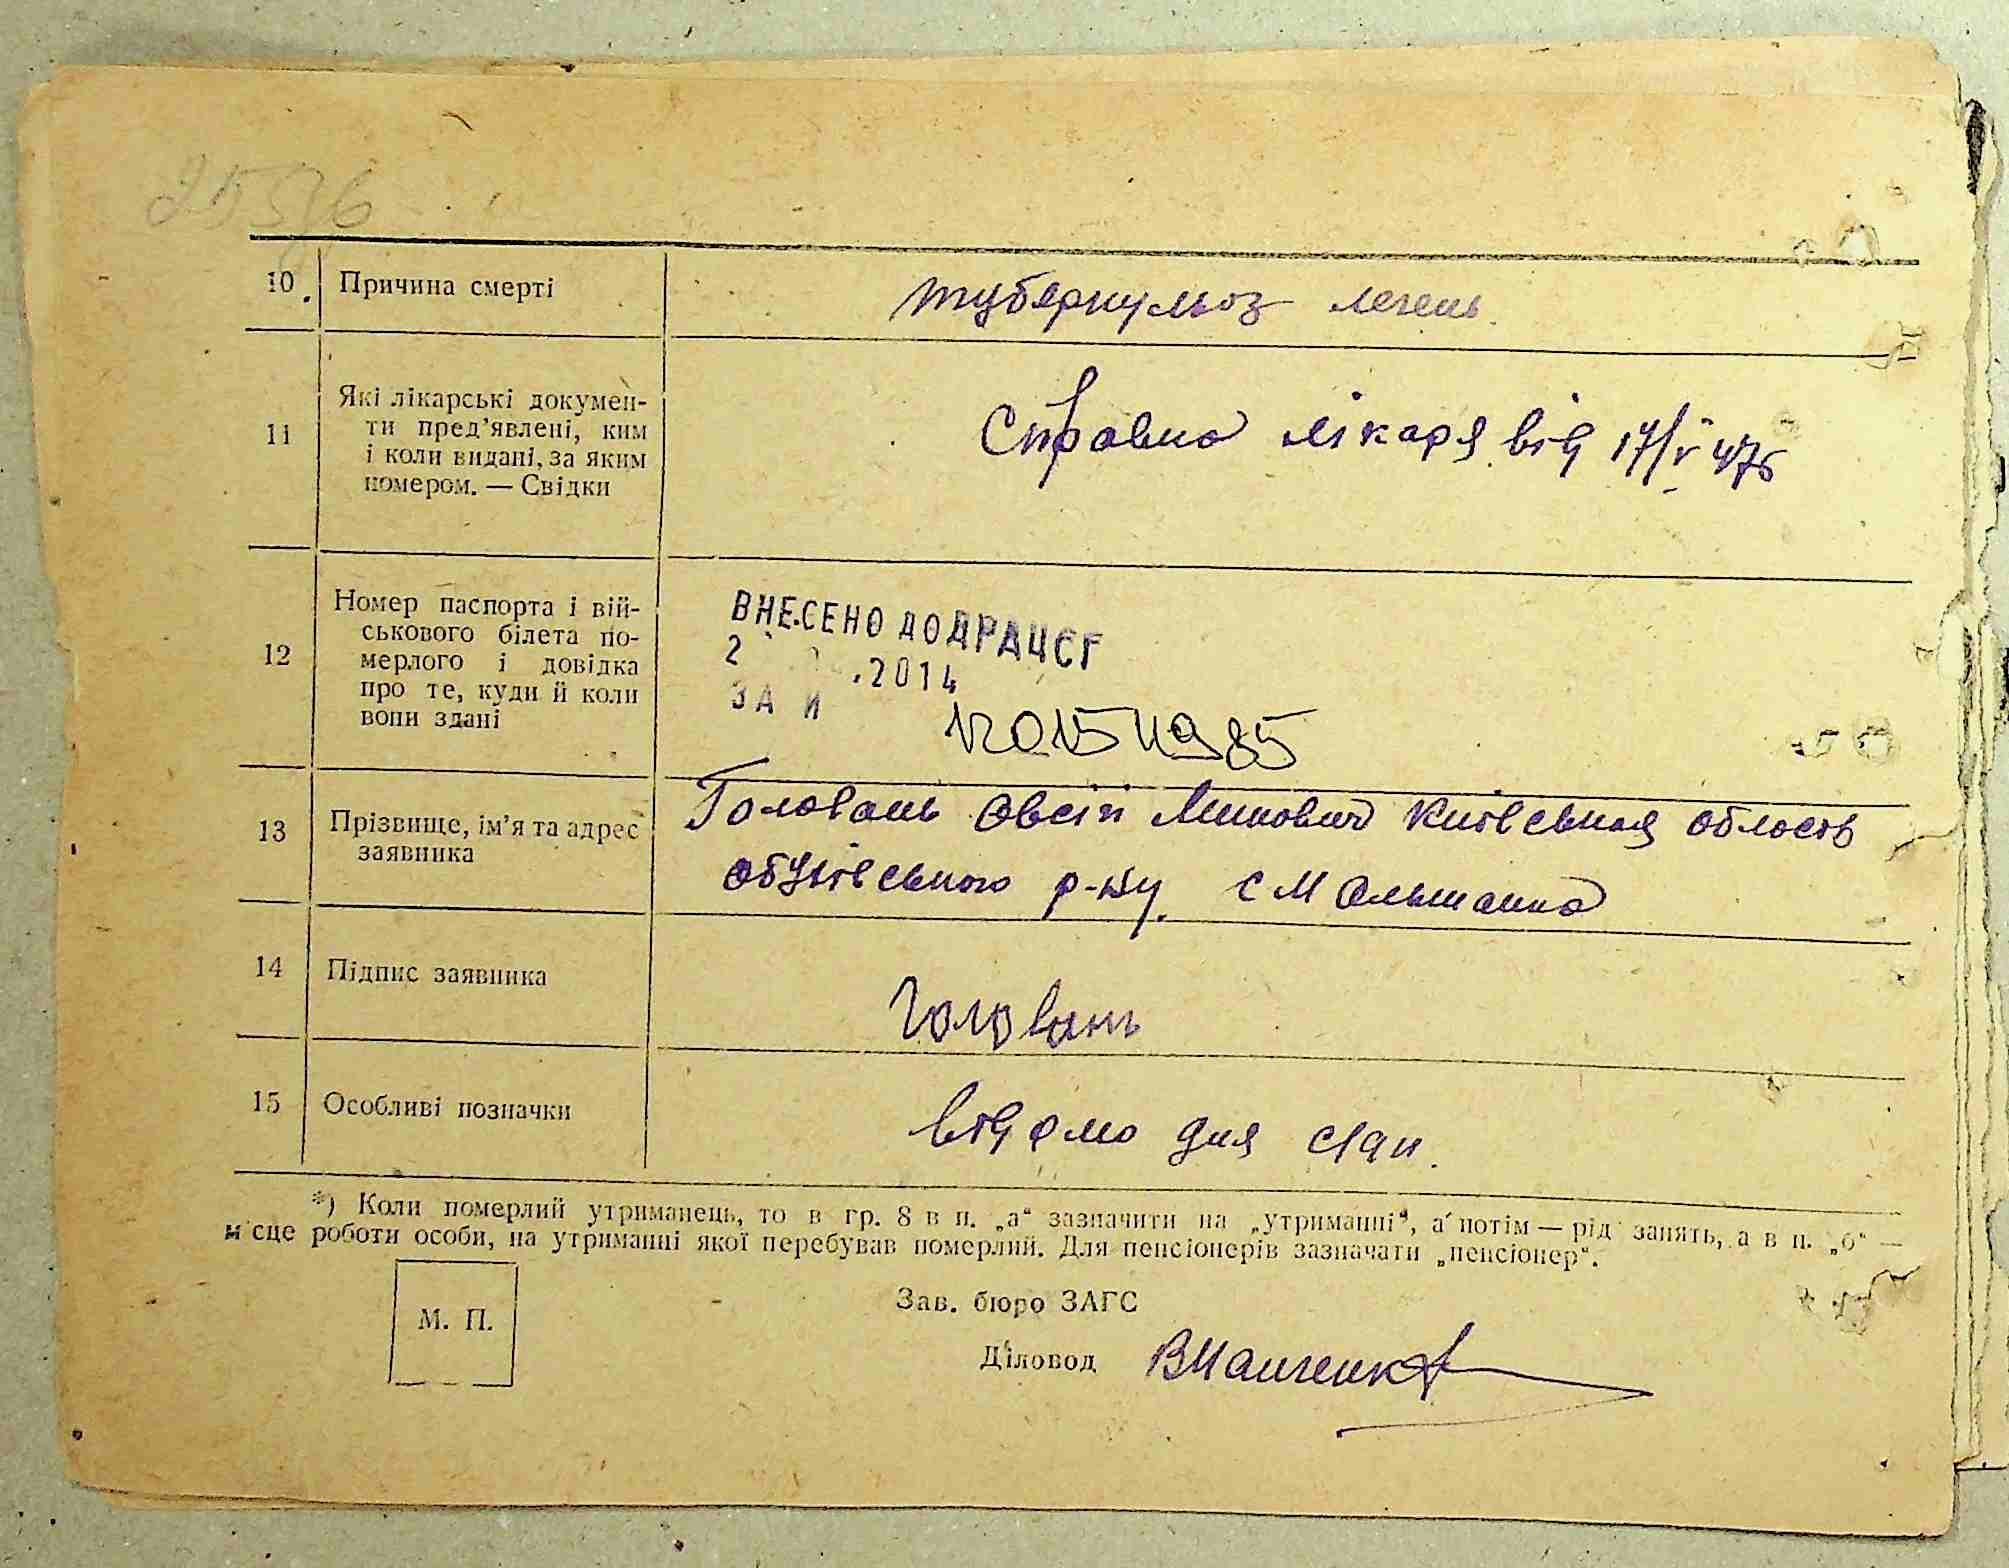 10. Причина смерті туберкульоз легень
11 Які лікарські докумен-
ти пред’явлені, ким
і коли видані, за яким
номером. — Свідки
Справка лікаря від 17/V 47б
12 Номер паспорта і вій-
ськового білета по-
мерлого і довідка
про те, куди й коли
вони здані
ВНЕСЕНО ДО ДРАЦСГ
2 .2014
ЗА И
12015411985
13 Прізвище, ім’я та адрес
заявника
Головань Овсій Минович Київськая область
обухівського р-ну. с М Ольшанка
14 Підпис заявника Головань
15 Особливі позначки відомо для стан.
*) Коли померлий утриманець, то в гр. 8 в п. „а“ зазначити на „утриманні“, а потім — рід занять, а в п. „б“ —
місце роботи особи, на утриманні якої перебував померлий. Для пенсіонерів зазначати „пенсіонер“.
М. П.
Зав. бюро ЗАГС
Діловод